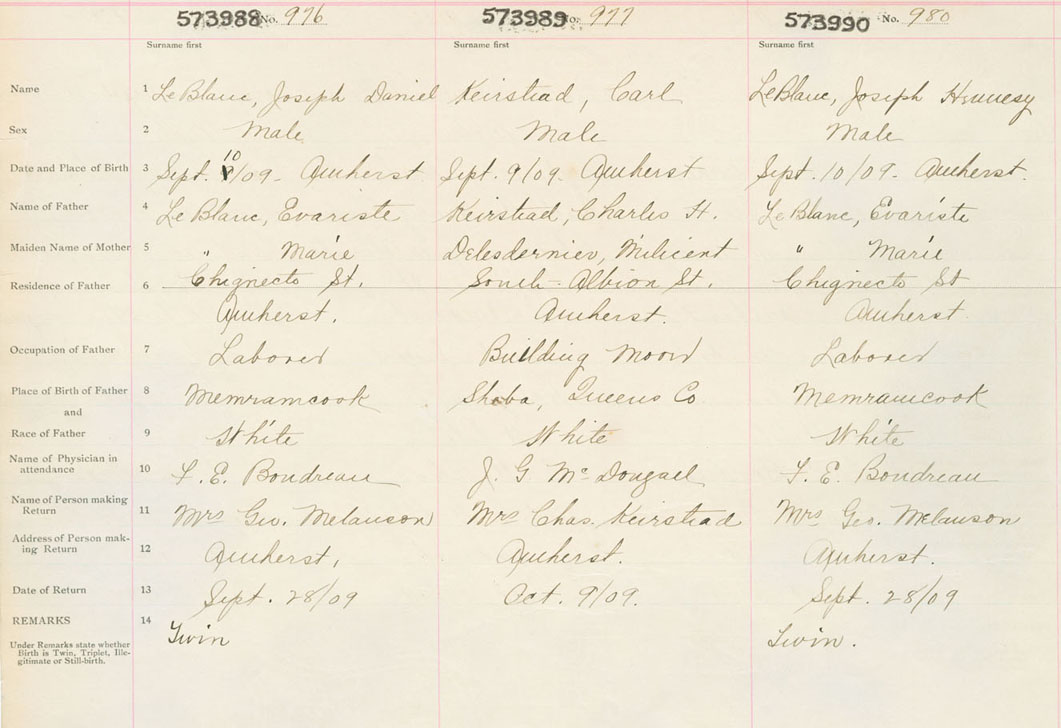 573988 No. 976 573989 No. 977 573990 No. 980
Surname first Surname first Surname first
Name 1 LeBlanc, Joseph Daniel Keirstead, Carl LeBlanc, Joseph Hennesy
Sex 2 Male Male Male
Date and Place of Birth 3 Sept. 10/09 - Amherst Sept. 9/09 - Amherst Sept. 10/09 - Amherst.
Name of Father 4 LeBlanc, Evariste Keirstead, Charles H. LeBlanc, Evariste
Maiden Name of Mother 5 " Marie Delesdernier, Milicent " Marie
Residence of Father 6 Chignecto St. South Albion St. Chignecto St
Amherst. Amherst. Amherst.
Occupation of Father 7 Laborer Building Mover Laborer
Place of Birth of Father 8 Memramcook Sheba, Queens Co Memramcook
and
Race of Father 9 White White White
Name of Physician in
attendance 10 F. E. Boudreau J. G McDougall F. E. Boudreau
Name of Person making
Return 11 Mrs Geo. Melanson Mrs Chas. Keirstead Mrs Geo. Melanson
Address of Person mak-
ing Return 12 Amherst, Amherst. Amherst.
Date of Return 13 Sept. 28/09 Oct. 9/09. Sept. 28/09
REMARKS 14 Twin Twin.
Under Remarks state whether
Birth is Twin, Triplet, Ille-
gitimate or Still-birth.